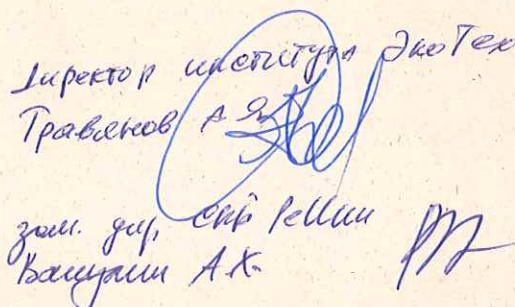 Директор института ЭкоТех
Травянов А Я
зам. дир.
А.Х.